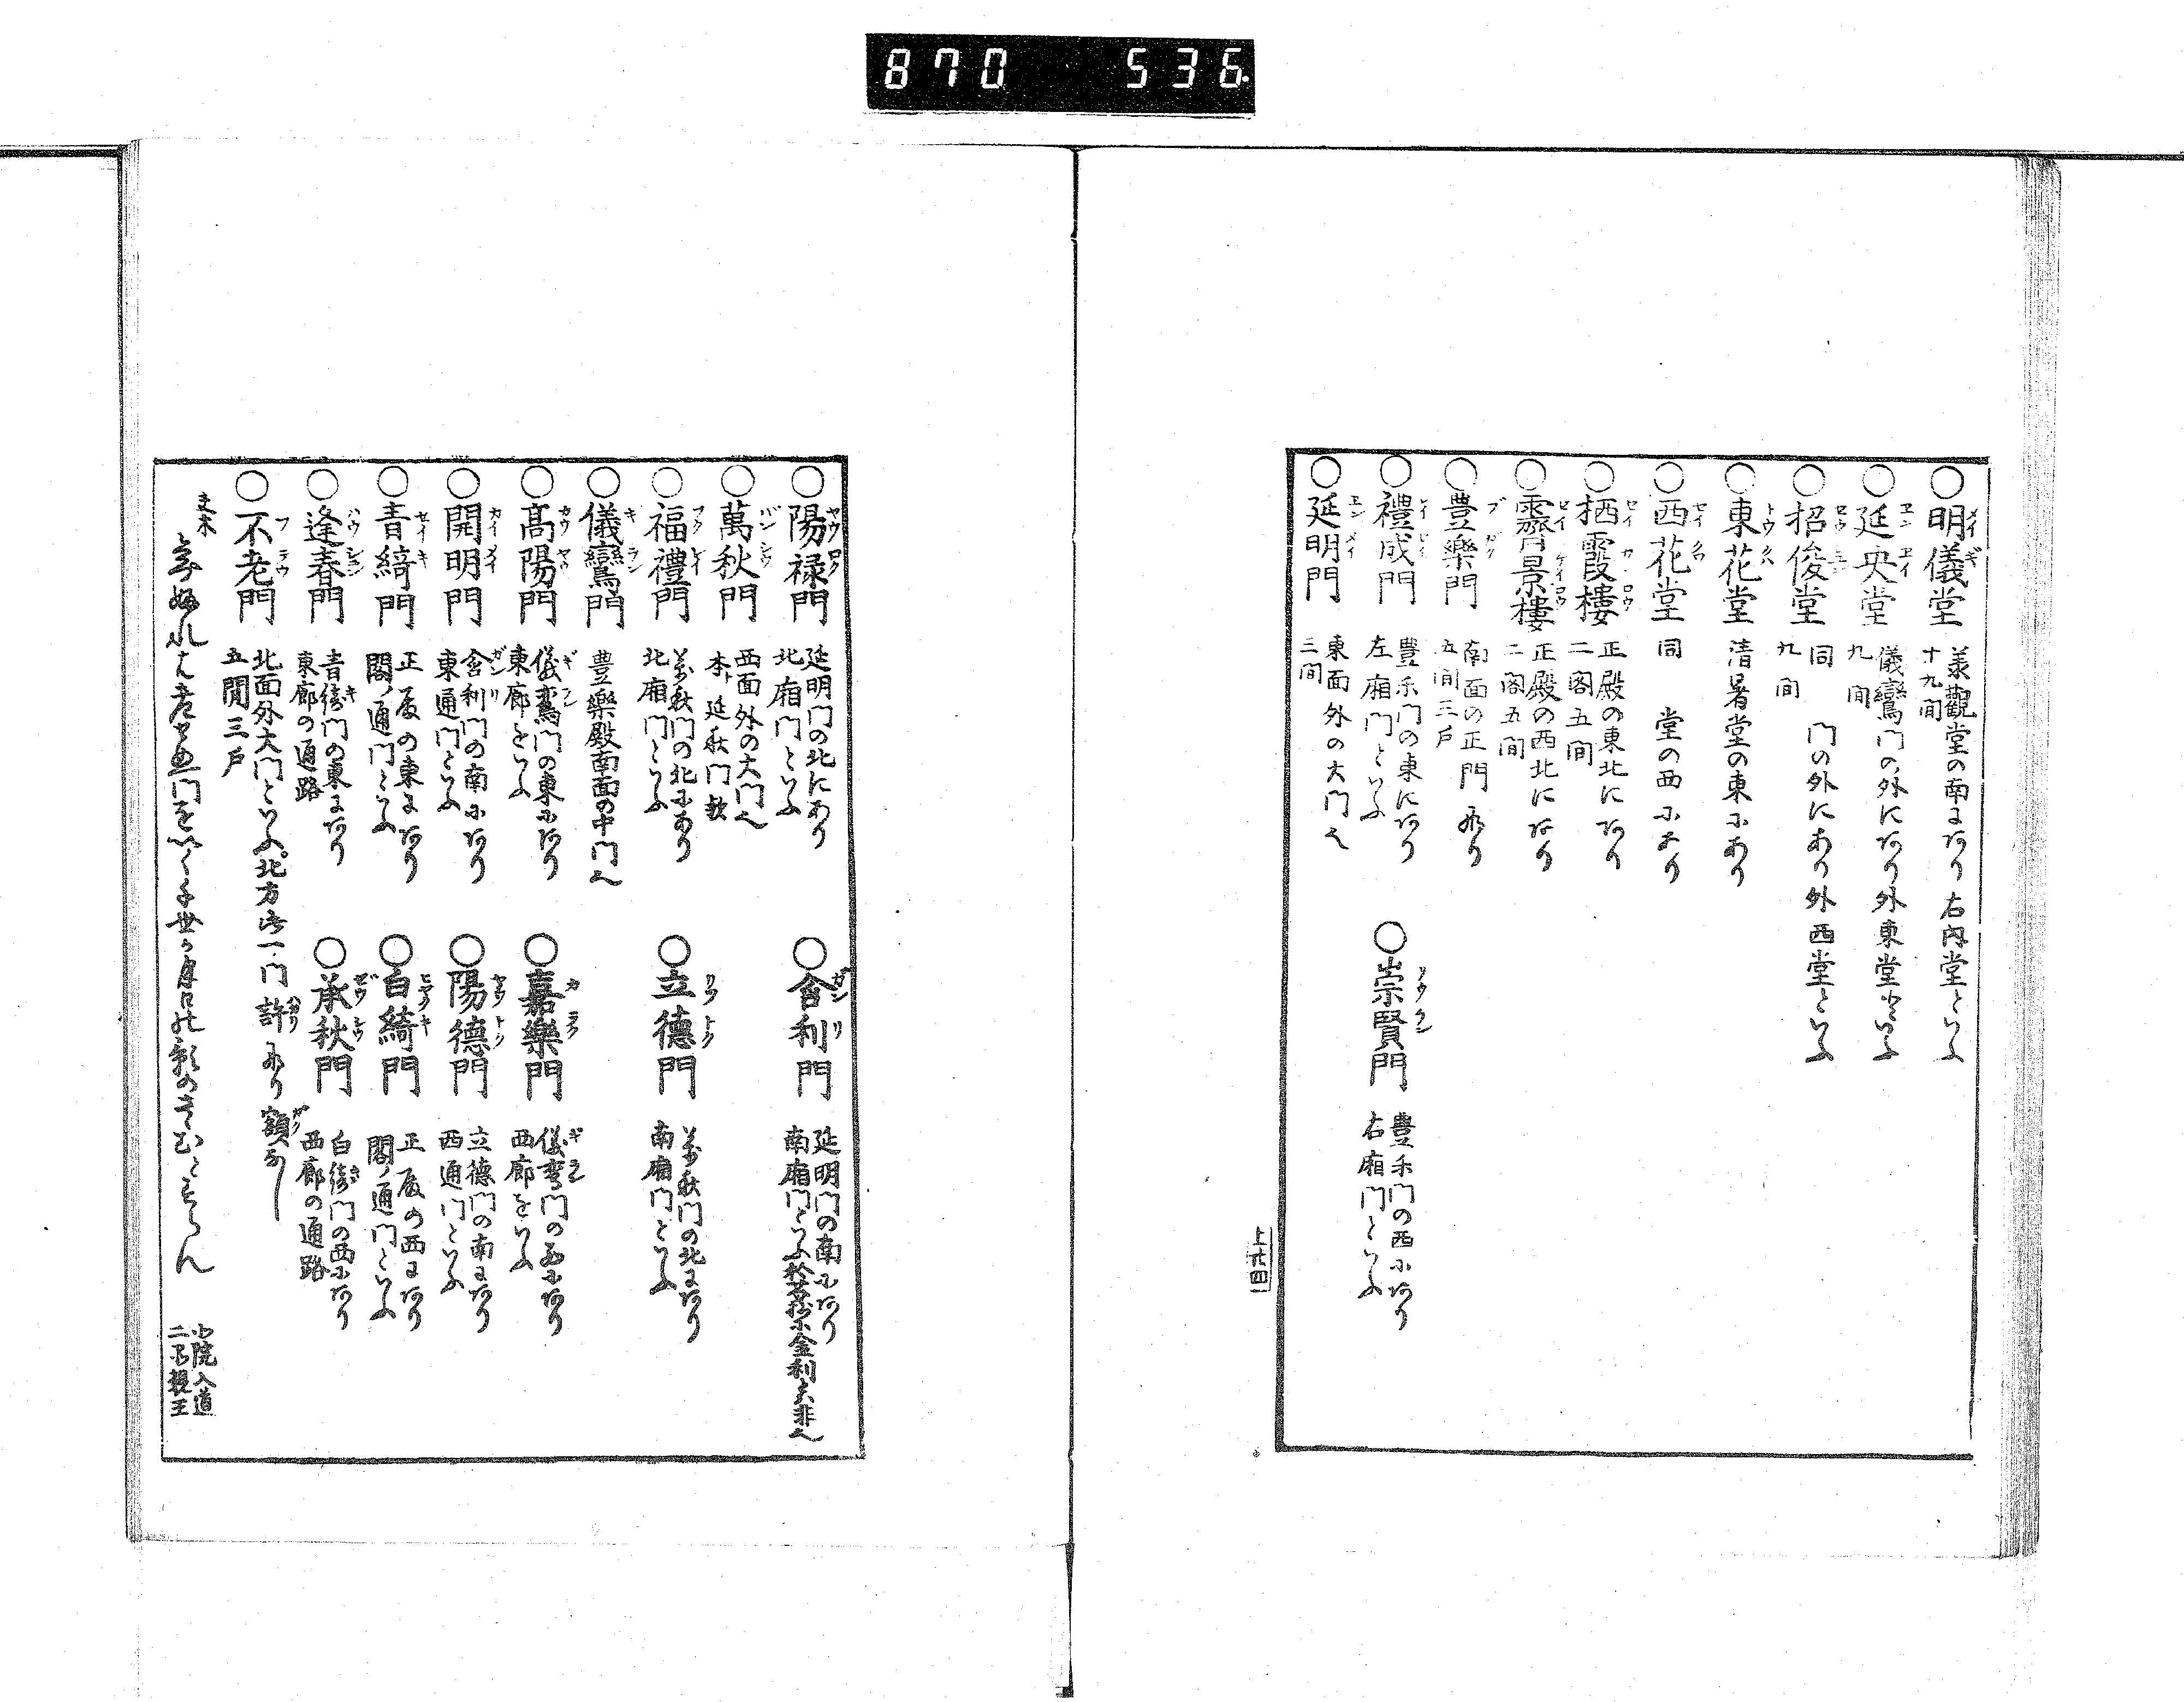 870 536
○明儀堂 美觀堂の南にあり右内堂といふ
十九間
○延英堂 儀鸞門の外にあり外東堂といふ
九間
○招俊堂 同 門の外にあり外西堂といふ
九間
○東花堂 清暑堂の東にあり
○西花堂 同 堂の西にあり
○栖霞樓 正殿の東北にあり
二閣五間
○霽景樓 正殿の西北にあり
二閣五間
○豊樂門 南面の正門なり
五間三戸
○禮成門 豊樂門の東にあり
左廂門といふ
○崇賢門 豊樂門の西にあり
右廂門といふ
○延明門 東面外の大門也
三間
上廿四
○陽禄門 延明門の北にあり
北廂門といふ
○含利門 延明門の南にあり
南廂門といふ
○萬秋門 西面外の大門也
本ト延秋門歟
○福禮門 萬秋門の北にあり
北廂門といふ
○立德門 萬秋門の北にあり
南廂門といふ
○儀鸞門 豊樂殿南面の中門也
○高陽門 儀鸞門の東にあり
東廊をいふ
○嘉樂門 儀鸞門の西にあり
西廊をいふ
○開明門 含利門の南にあり
東通門といふ
○陽德門 立德門の南にあり
西通門といふ
○青綺門 正殿の東にあり
閣ノ通門といふ
○白綺門 正殿の西にあり
閣ノ通門といふ
○逢春門 青綺門の東にあり
東廊の通路
○承秋門 白綺門の西にあり
西廊の通路
○不老門 北面外大門といふ北方此一門許なり額なし
五間三戸
夫木
入道
二品親王